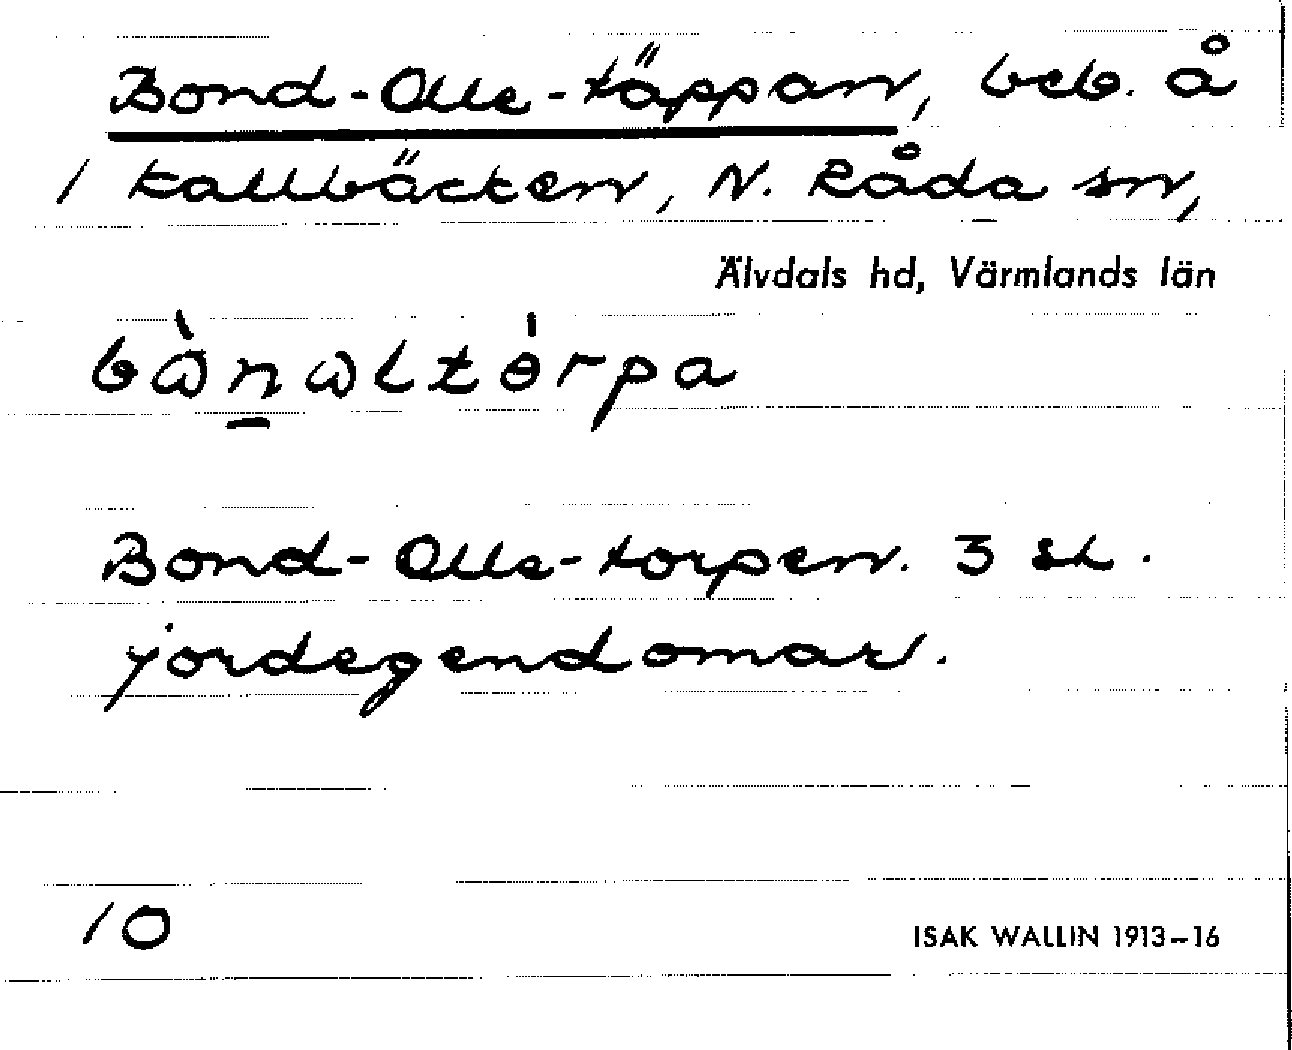 Bond-Olle-täppan, beb. å
1 Kallbäcken, N. Råda sn,
Älvdals hd, Värmlands län
bὼn̲ωltɵ́rpa
Bond-Olle-torpen. 3 st.
jordegendomar.
10
ISAK WALLIN 1913–16